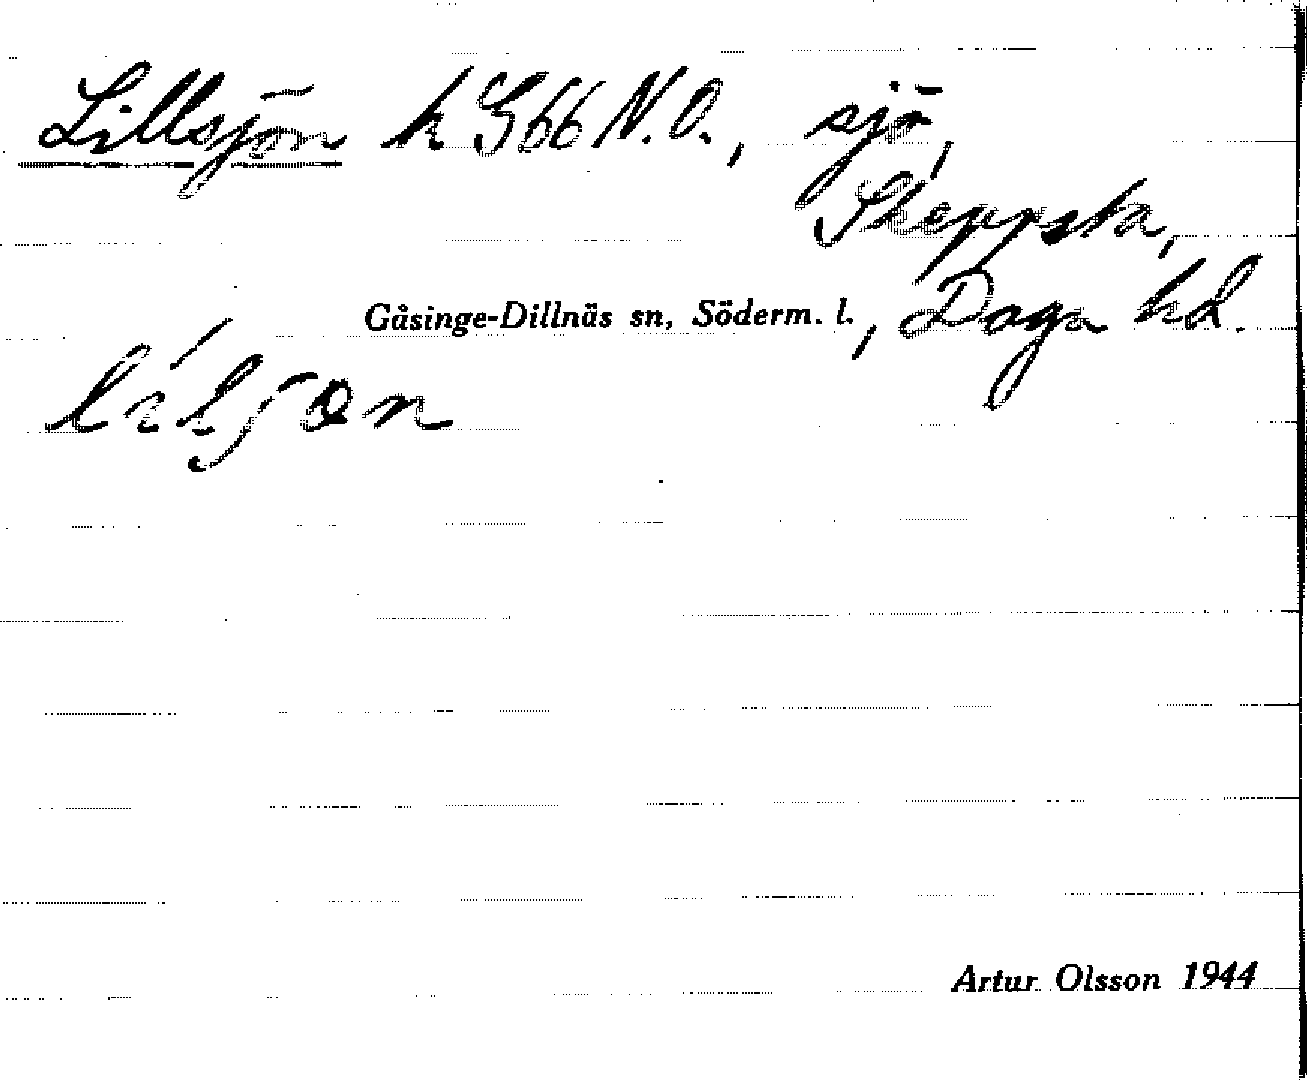 Lillsjön k G66 N.O., sjö,
Skeppsta,
Gåsinge-Dillnäs sn, Söderm. l., Daga hd.
Artur Olsson 1944